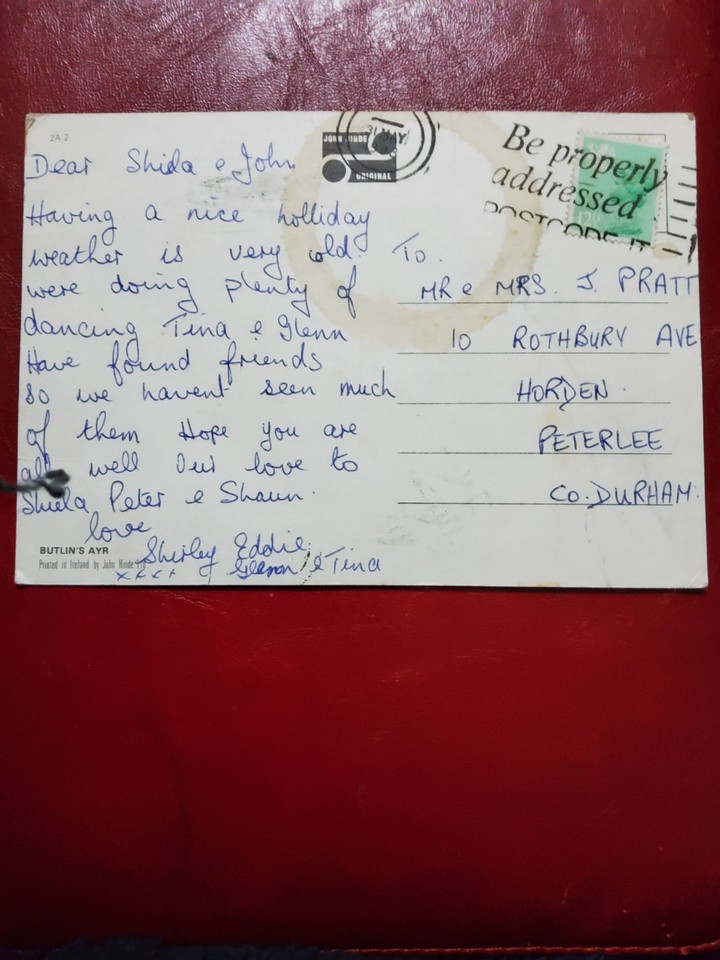 2A 2
JOHN HINDE
ORIGINAL
31 MAY
Be properly
addressed
POSTCODE IT
Dear Shida e John
Having a nice holliday
weather is very cold.
were doing plenty of
dancing Tina e Glenn
Have found friends
so we havent seen much
of them Hope you are
all well Our love to
Shiela Peter e Shaun.
love
Shirley Eddie
Glenn e Tina
xxxx
To.
MR e MRS. J. PRATT
10 ROTHBURY AVE
HORDEN.
PETERLEE
CO. DURHAM.
BUTLIN'S AYR
Printed in Ireland by John Hinde